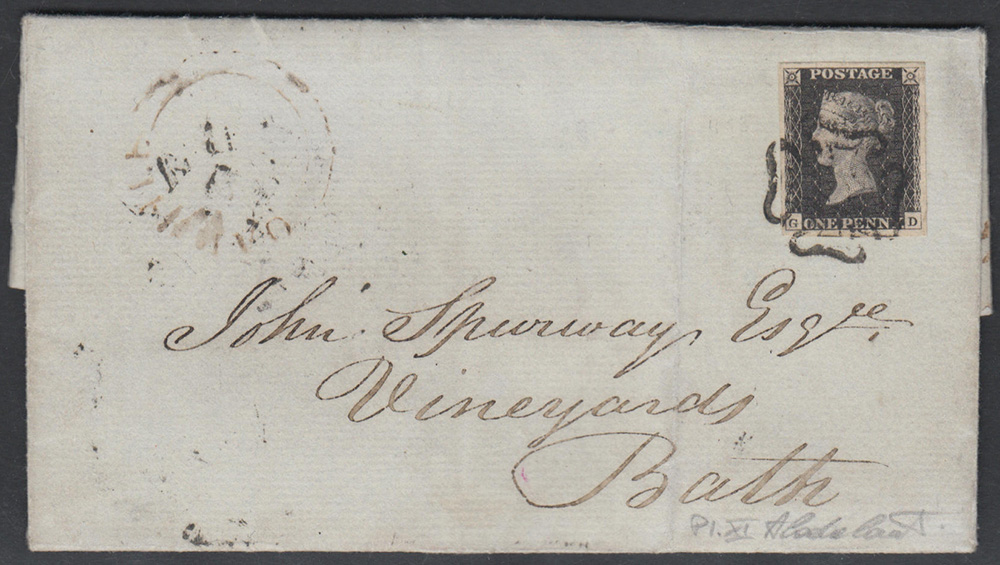 POSTAGE
G ONE PENNY D
John Spurway Esqre
Vineyards
Bath
Pl. XI